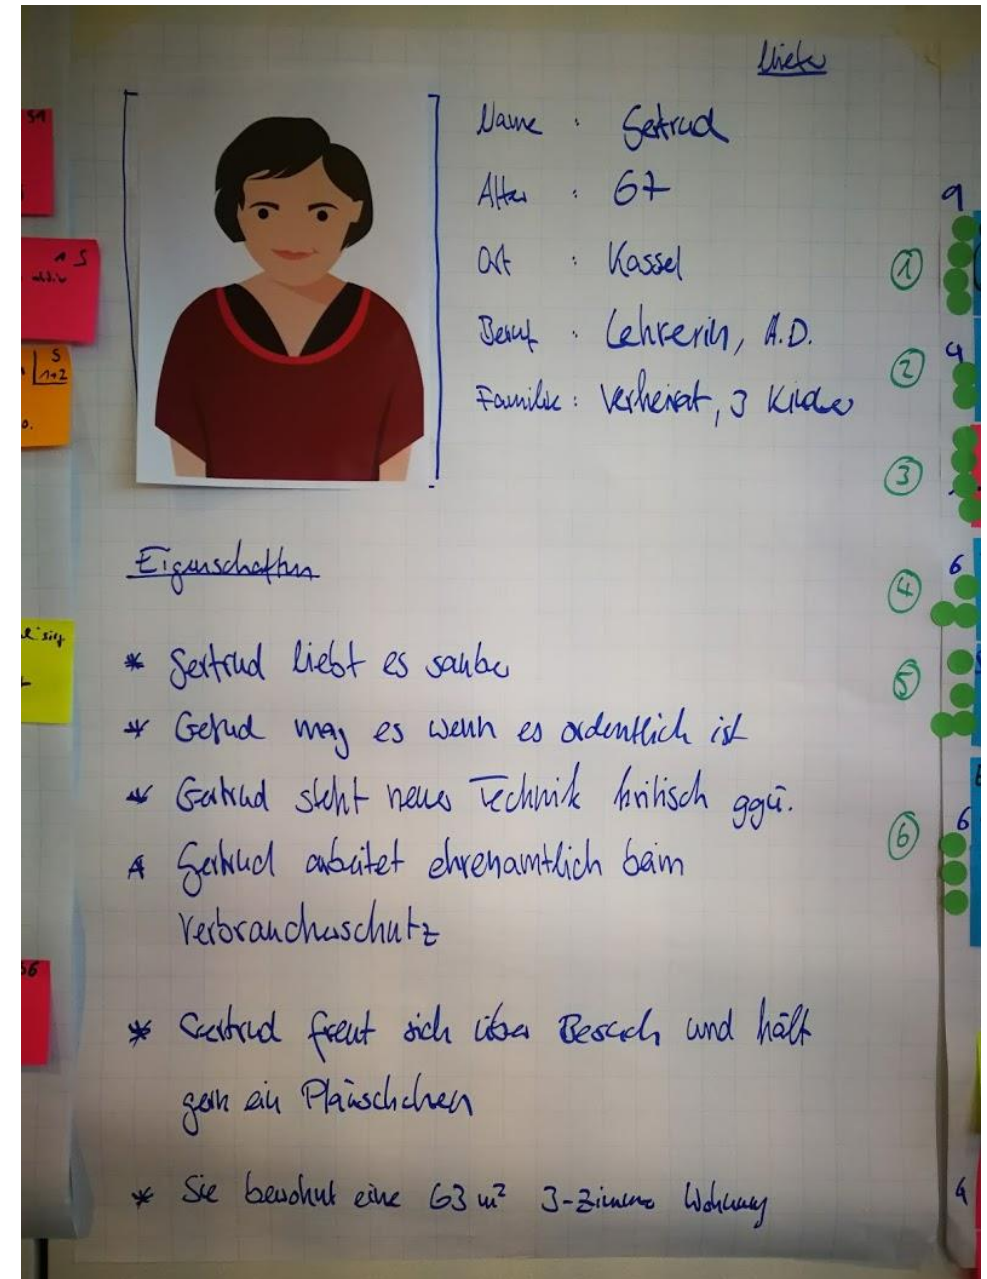 Mieter
Name : Gertrud
Alter : 67
Ort : Kassel
Beruf : Lehrerin, A.D.
Familie : Verheirat, 3 Kinder
Eigenschaften
* Gertrud liebt es sauber
* Getrud mag es wenn es ordentlich ist
* Gertrud steht neuer Technik kritisch ggü.
* Gertrud arbeitet ehrenamtlich beim
Verbraucherschutz
* Gertrud freut sich über Besuch und hält
gern ein Pläuschchen
* Sie bewohnt eine 63 m² 3-Zimmer Wohnung
1
2
3
4
5
6
9
4
6
6
4
S
1+2